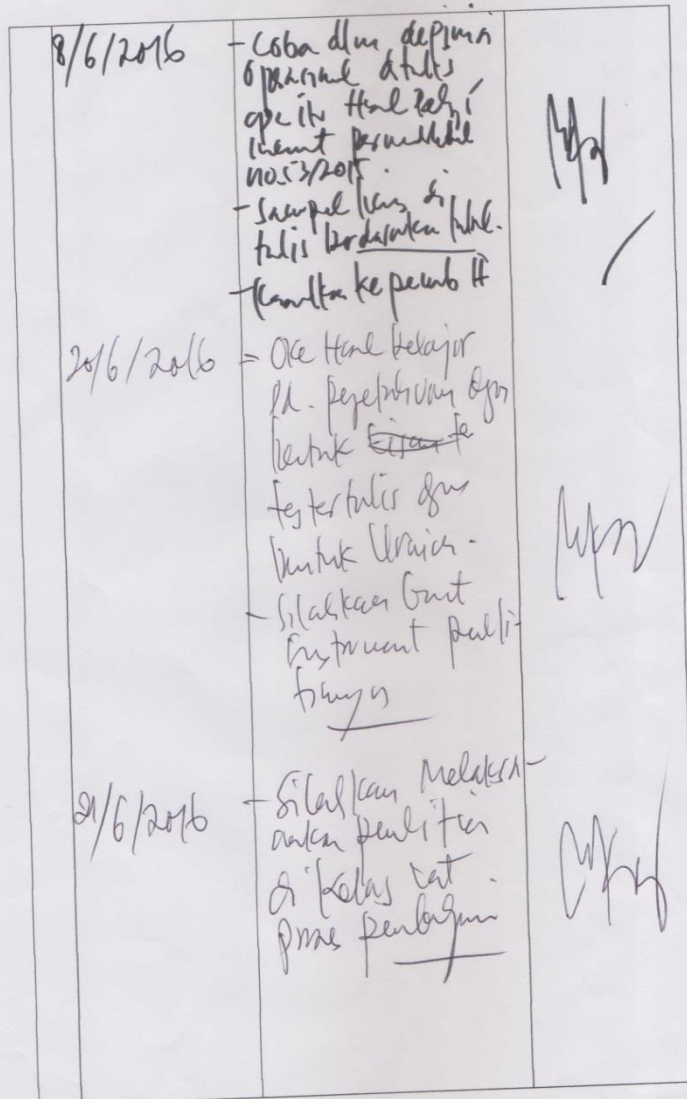 8/6/2016 - Coba dlm depinisi
operasional ditulis
apa itu Hasil belaj
menurut Permendikbud
no.53/2015.
- Sampel harus di
tulis berdasarkan
- ke pemb II
20/6/2016 = Oke Hasil belajar
pd. pengetahuan dgn
bentuk
tes tertulis dgn
bentuk Uraian.
- Silahkan buat
instrument peneli-
tiannya
21/6/2016 - Silahkan Melaksa-
nakan penelitian
di kelas
proses